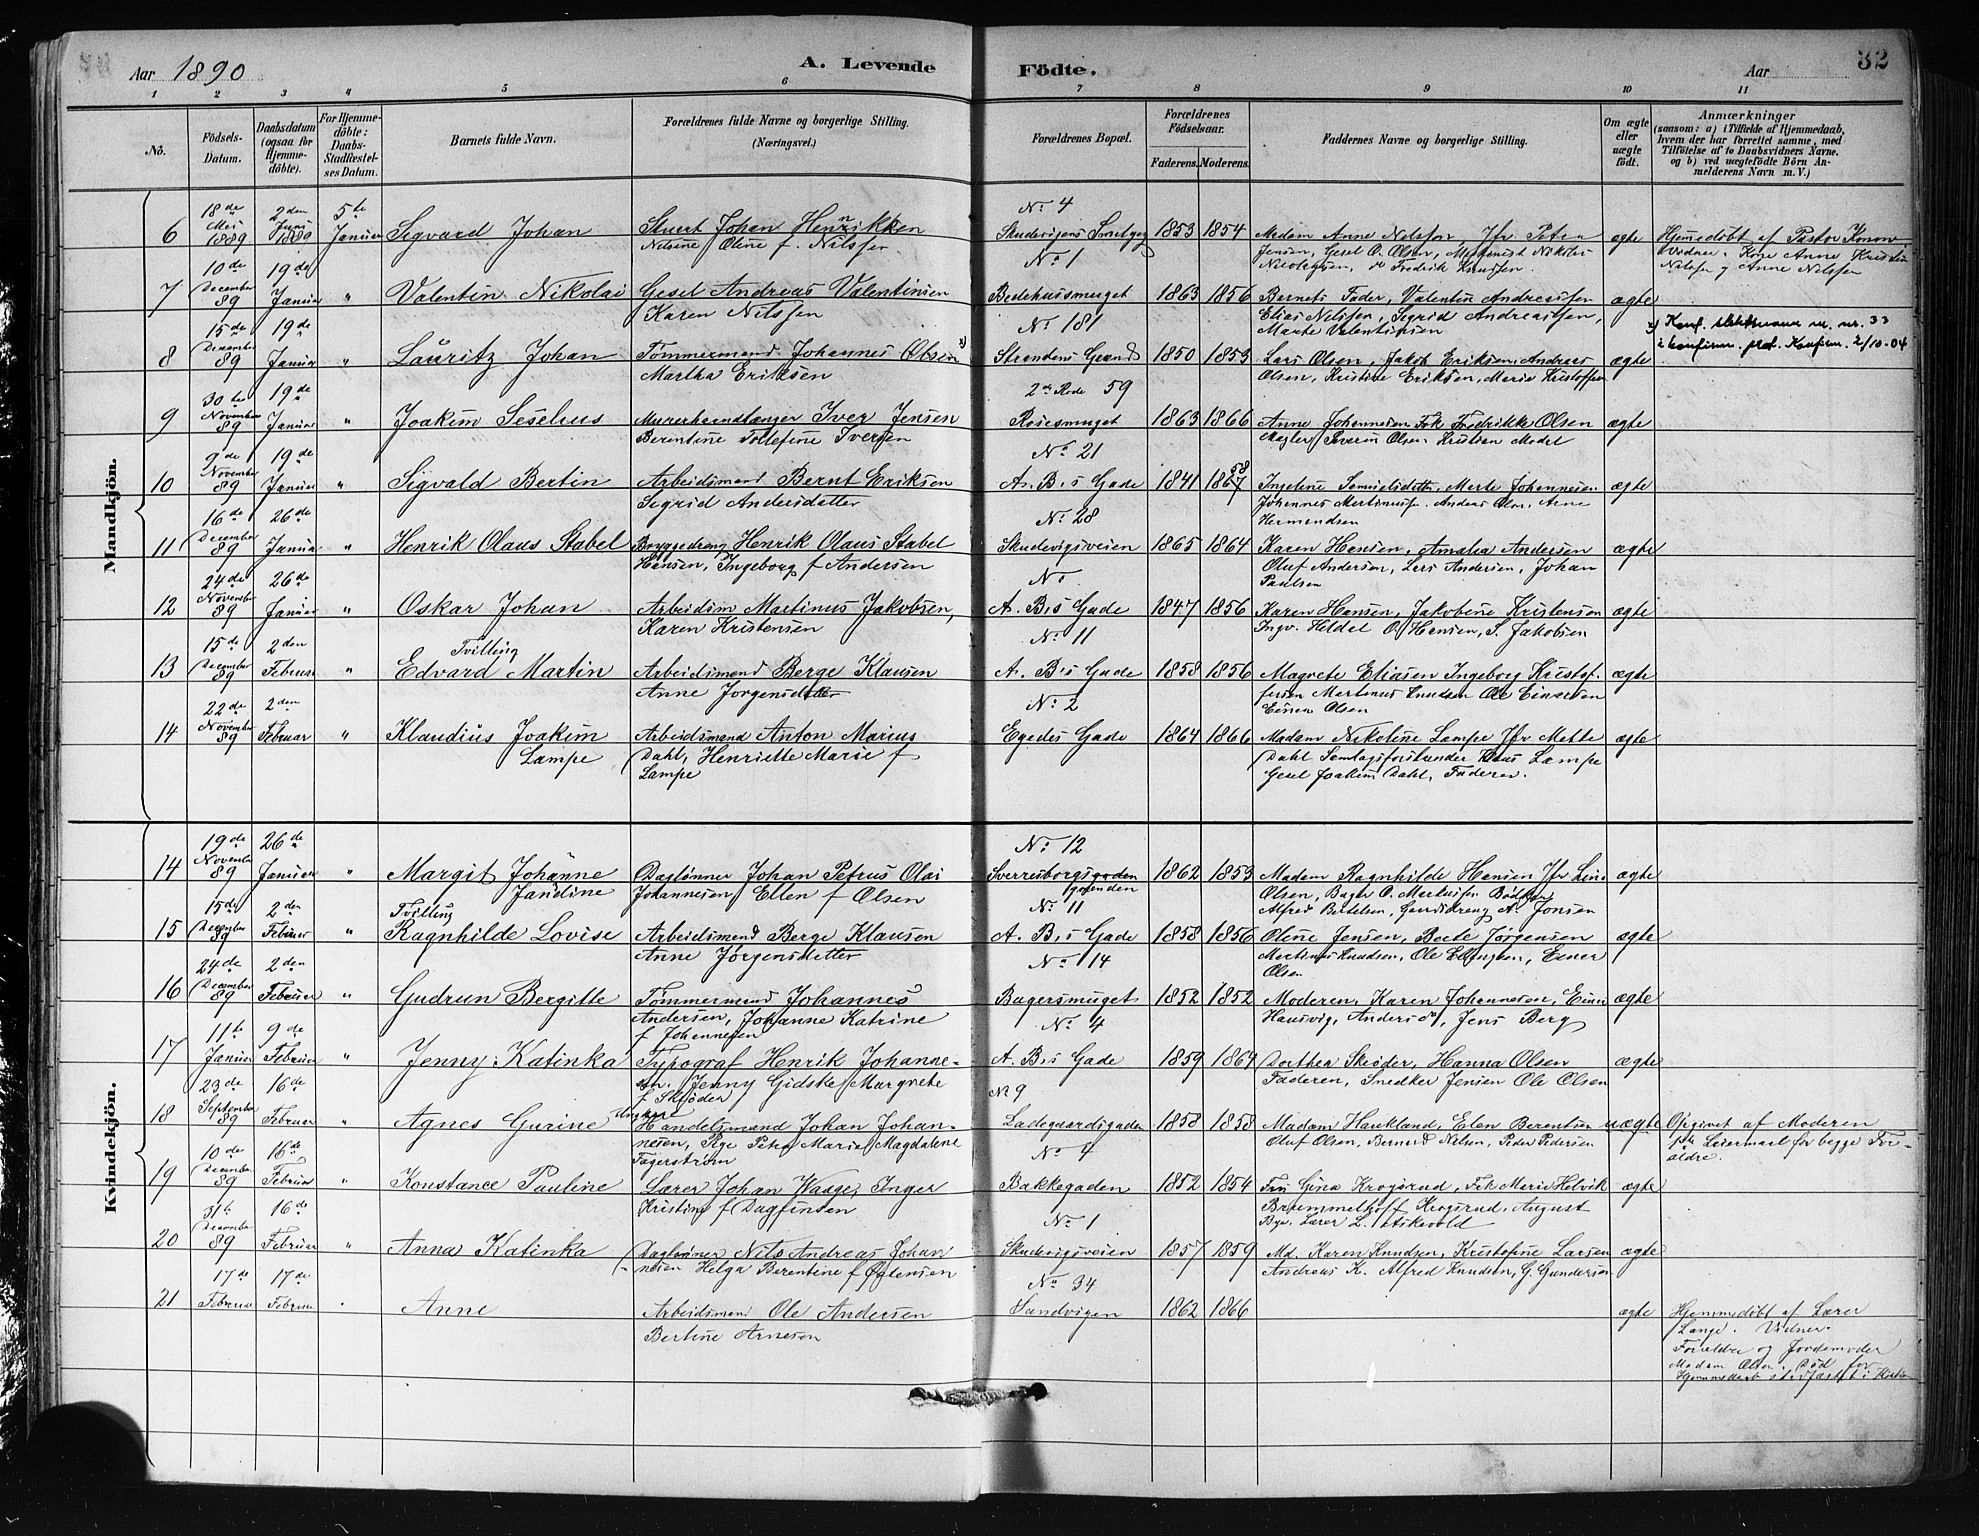 Aar 1890 A. Levende Födte. Aar 32
1 2 3 4 5 6 7 8 9 10 11
No. Födsels-Datum. Daabsdatum (ogsaa for Hjemmedöbte). For Hjemmedöbte: Daabs-Stadfestelses Datum. Barnets fulde Navn. Forældrenes fulde Navne og borgerlige Stilling. (Næringsvei.) Forældrenes Bopæl. Forældrenes Födselsaar. Faderens. Moderens. Faddernes Navne og borgerlige Stilling. Om ægte eller uægte födt. Anmærkninger
(saasom: a) i Tilfælde af Hjemmedaab, hvem der har forrettet samme, med Tilföielse af to Daabsvidners Navne, og b) ved uægtefödte Börn Anmelderens Navn m. V.)
Mandkjön.
18de 2den 5te No 4
6 Mai 1889 Juni 1889 Januar Sigvard Johan Stuert Johan Henrikken Skudevigens Smalgg 1853 1854 Madam Anne Nilsson Jfr Petra ægte Hjemedöbt af Pastor Konow.
Nilsine Oline f. Nilssen No 1 Jensen, Gesel O. Olsen,
Nilsen og Anne Nilssen
10de 19de
7 December 89 Januar " Valentin Nikolai Gesel Andreas Valentinsen Bedehussmuget 1863 1856 Barnets Fader, Valentin Andreassen ægte
Karen Nilssen No 181 Elias Nilssen, Sigrid Andreassen,
Marte Valentinsen
15de 19de
8 December 89 Januar " Lauritz Johan Tömmermand Johannes Olsen x) Strandens Grænd 1850 1853 Lars Olsen, Jakob Eriksen, Andreas ægte
Martha Eriksen 2de Rode 59 Olsen, Kristine Eriksen, Marie Kristoffersen
30te 19de
9 November 89 Januar " Joakim Seselius Murerhaandlanger Iver Jensen Rosesmuget 1863 1866 Anne Johannesen Frk Fredrikke Olsen ægte
Berentine Tollefine Iversen No 21 Severin Olsen Kristian Model
9de 19de
10 November 89 Januar " Sigvald Bertin Arbeidsmand Bernt Eriksen A. B,s Gade 1841 1867 58 Ingeline Samuelsdatter, Marte Johannesen ægte
Sigrid Andersdatter No 28 Johannes Martinussen Anders Olsen, Arne
Hermandsen
16de 26de
11 December 89 Januar " Henrik Olaus Stabel Bryggedreng Henrik Olaus Stabel Skudevigsveien 1865 1864 Karen Hansen, Amalia Andersen ægte
Hansen, Ingeborg f Andersen No Oluf Andersen, Lars Andersen, Johan
Paulsen
24de 26de
12 November 89 Januar " Oskar Johan Arbeidsm Martinus Jakobsen, A. B,s Gade 1847 1856 Karen Hansen, Jakobine Kristensen ægte
Karen Kristensen No 11 Ingv. Heldal O. Hansen, S. Jakobsen
15de 2den Tvilling
13 December 89 Februar " Edvard Martin Arbeidsmand Berge Klausen A. B,s Gade 1858 1856 Magrete Eliasen Ingeborg Kristof- ægte
Anne Jorgensdatter No 2 fersen Martinus Knudsen Ole Einarsen
Einar Olsen
22de 2den
14 November 89 Februar " Klaudius Joakim Arbeidsmand Anton Marius Egedes Gade 1864 1866 Madam Nikoline Lampe Jfr Mette ægte
Lampe Dahl, Henriette Marie f Dahl Samlagsforstander Klaus Lampe
Lampe Gesel Joakim Dahl, Faderen.
Kvindekjön.
19de 26de No 12
14 November 89 Januar Margit Johanne Daglönner Johan Petrus Olai Sverresborgsgaden 1862 1853 Madam Ragnhilde Hansen Jfr Lina ægte
Jandine Johannesen Ellen f Olsen No 11 Olsen, Bager O. Markussen Bödker
Alfred Bertelsen, Gaardsdreng A. Jonsen
15de 2den Tvilling
15 December 89 Februar " Ragnhilde Lovise Arbeidsmand Berge Klausen A. B,s Gade 1858 1856 Oline Jensen, Berte Jørgensen ægte
Anne Jørgensdatter No 14 Martinus Knudsen, Ole Ellingsen, Einar
Olsen
24de 2den
16 December 89 Februar " Gudrun Bergitte Tömmermand Johannes Bagersmuget 1852 1852 Moderen, Karen Johannesen, Einar ægte
Andersen, Johanne Katrine No 4 Hausvig, Jens Berg
f Johannesen
11te 9de
17 Januar Februar " Jenny Katinka Typograf Henrik Johanne- A. B,s Gade 1859 1864 Dorthea Skröder, Hanna Olsen ægte
sen. Jenny Gidske Margrete No 9 Faderen, Snedker Jensen Ole Olsen
f Skröder
23de 16de
18 September 89 Februar " Agnes Gurine Ungkarl Handelsmand Johan Johan- Ladegaardsgaden 1858 1858 Madam Haukland, Elen Berentsen uægte Opgivet af Moderen
nesen, Pige Petra Marie Magdalene No 4 Oluf Olsen, Bernerd Nilsen, Peder Pedersen 1ste Leiermaal for begge For-
Fagerström ældre.
10de 16de
19 December 89 Februar Konstance Pauline Lærer Johan Waage, Inger Bakkegaden 1852 1854 Fru Gina Krogsrud, Frk Marie Helvik ægte
Kristine f Dagfinsen No 1 Brammelhoff Krogsrud, August
Bye, Lærer L. Askevold
31te 16de
20 December 89 Februar " Anna Katinka Daglønner Nils Andreas Johan Skudevigsveien 1857 1859 Md. Karen Knudsen, Kristofine Larsen ægte
nesen Helga Berentine f Øglensen No 34 Andreas K. Alfred Knudsen, G. Gundersen
17de 17de
21 Februar Februar Anne Arbeidsmand Ole Andersen Sandvigen 1862 1866 ægte Hjemmedöbt af Lærer
Bertine Arnesen Lange. Vidner.
Forældre og Jordemoder
Madam Olsen. Död for